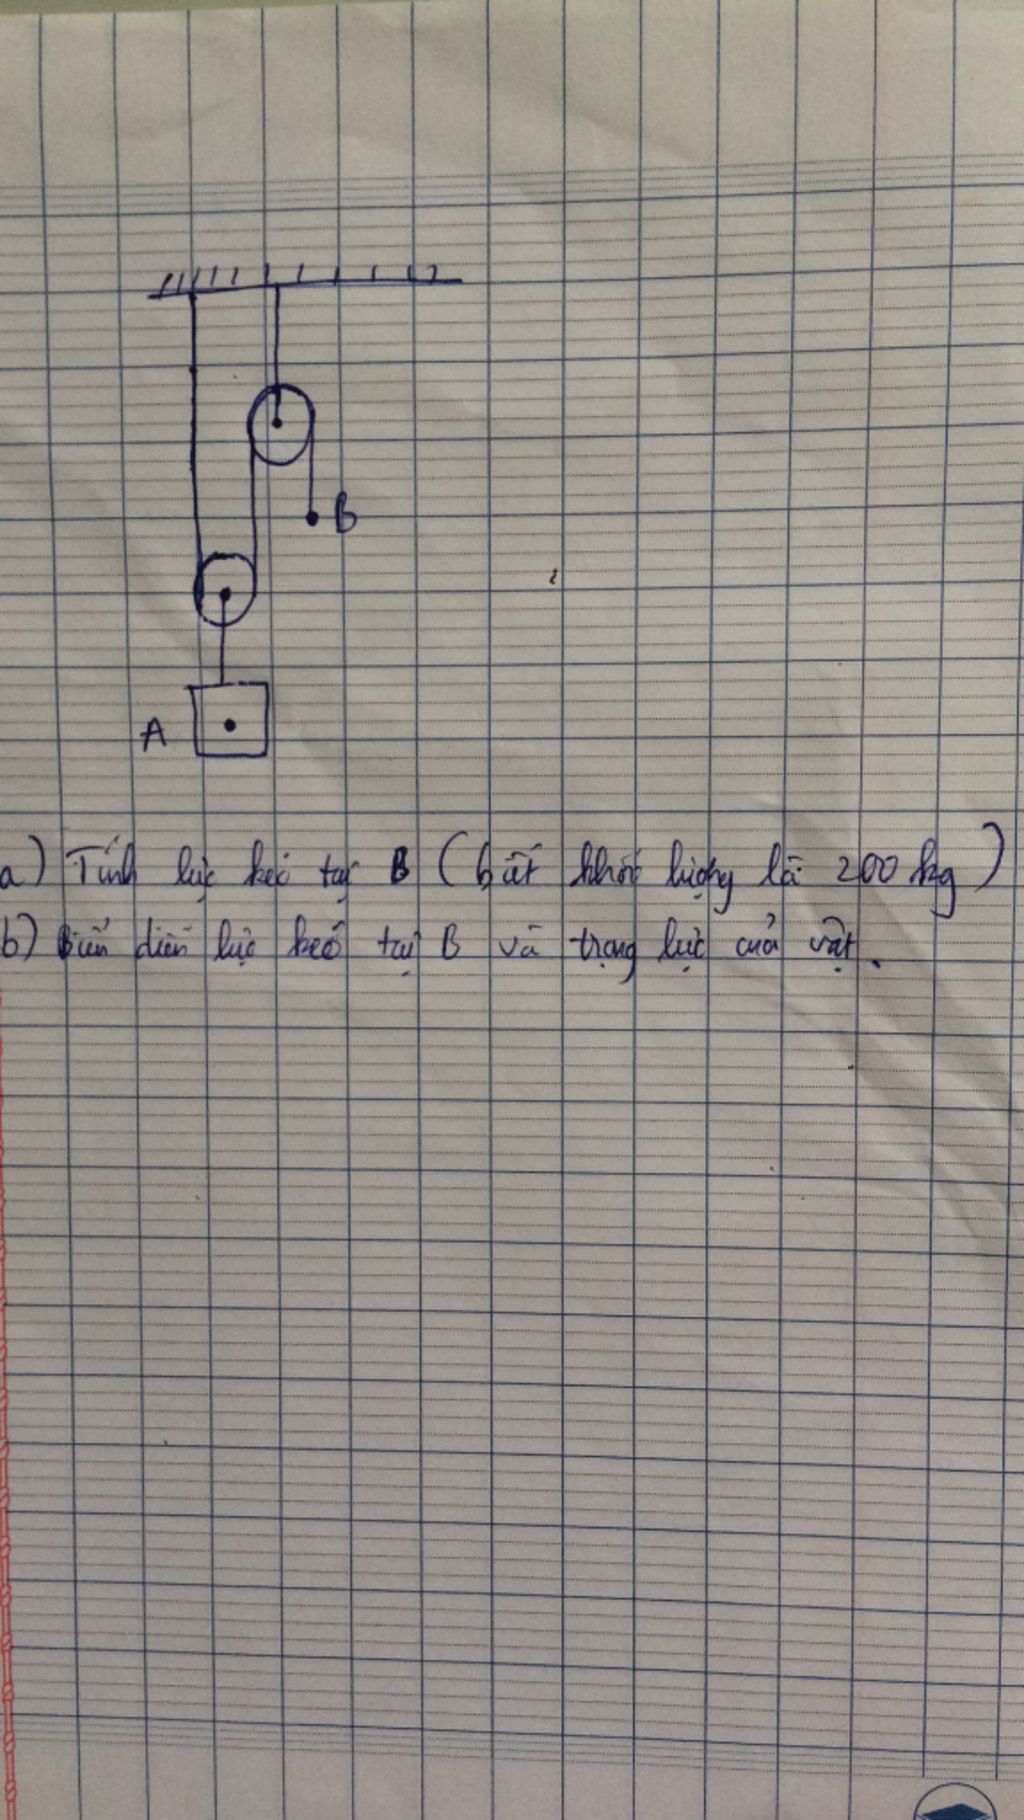 B
A
a) Tính lực kéo tại B (biết khối lượng là 200 kg)
b) Biểu diễn lực kéo tại B và trọng lực của vật.